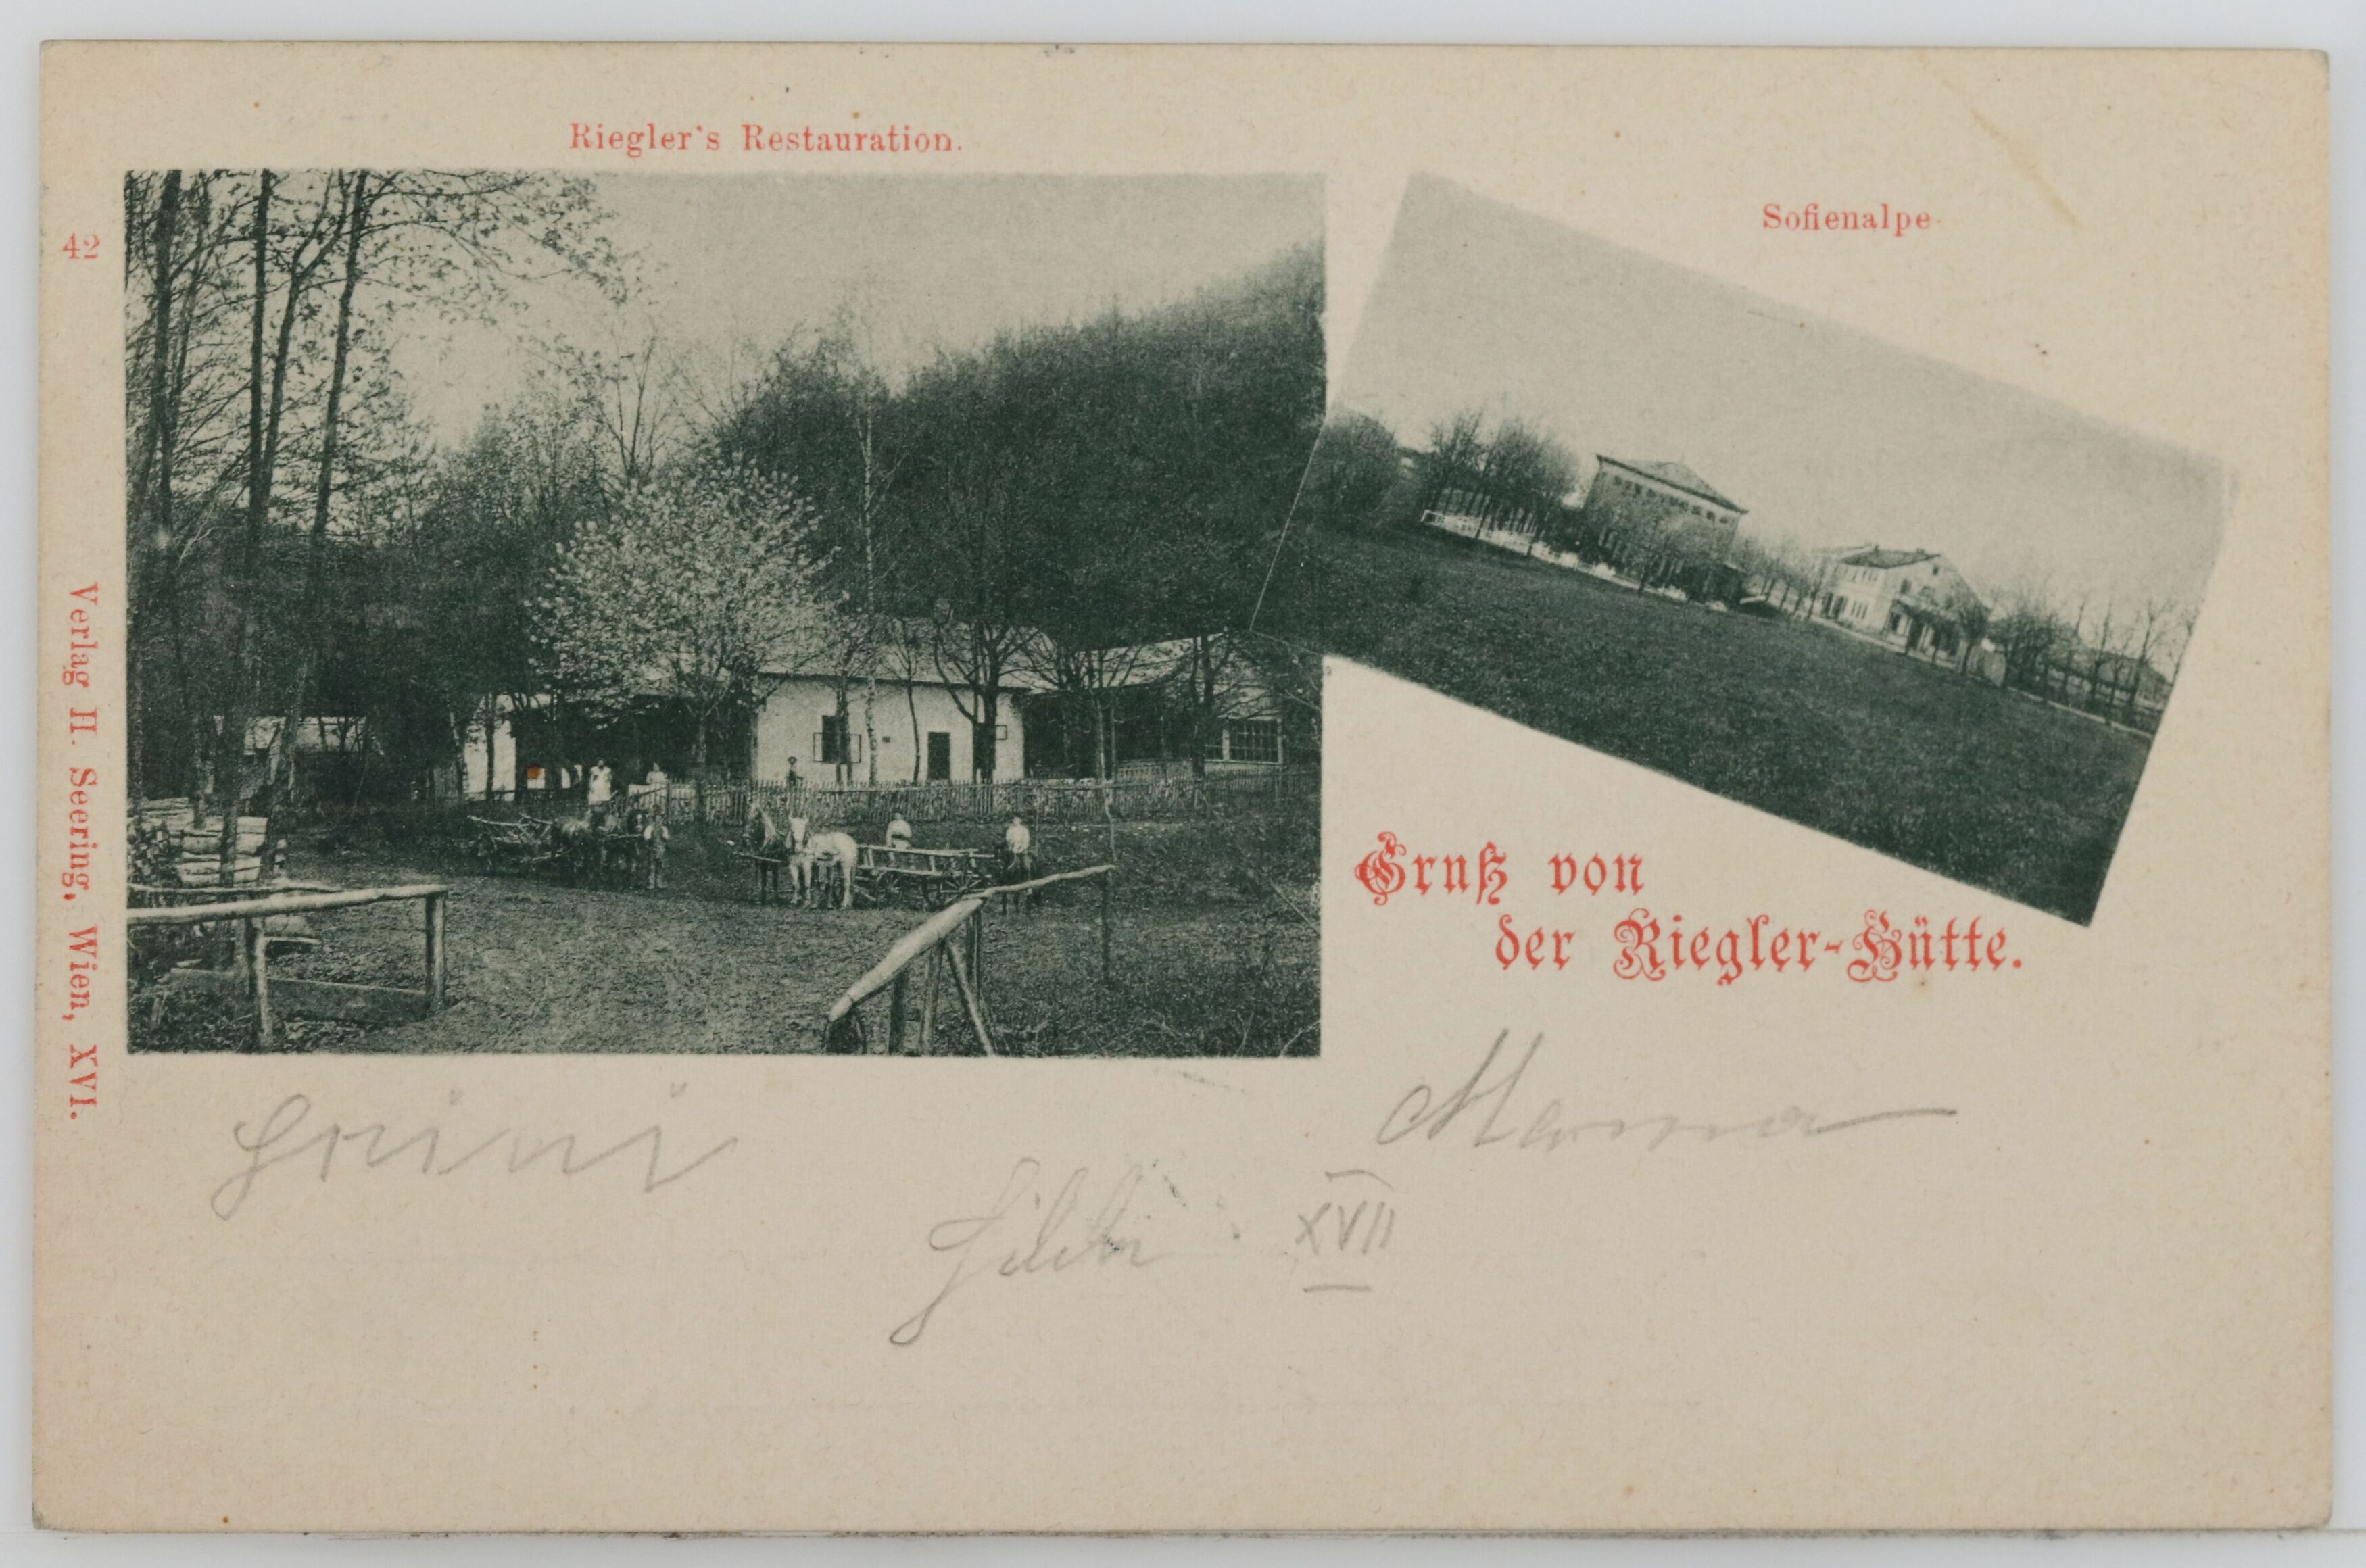 Riegler's Restauration.
Sofienalpe
42
Verlag H. Seering, Wien, XVI.
Gruß von
der Riegler-Hütte.
Mama
XVII